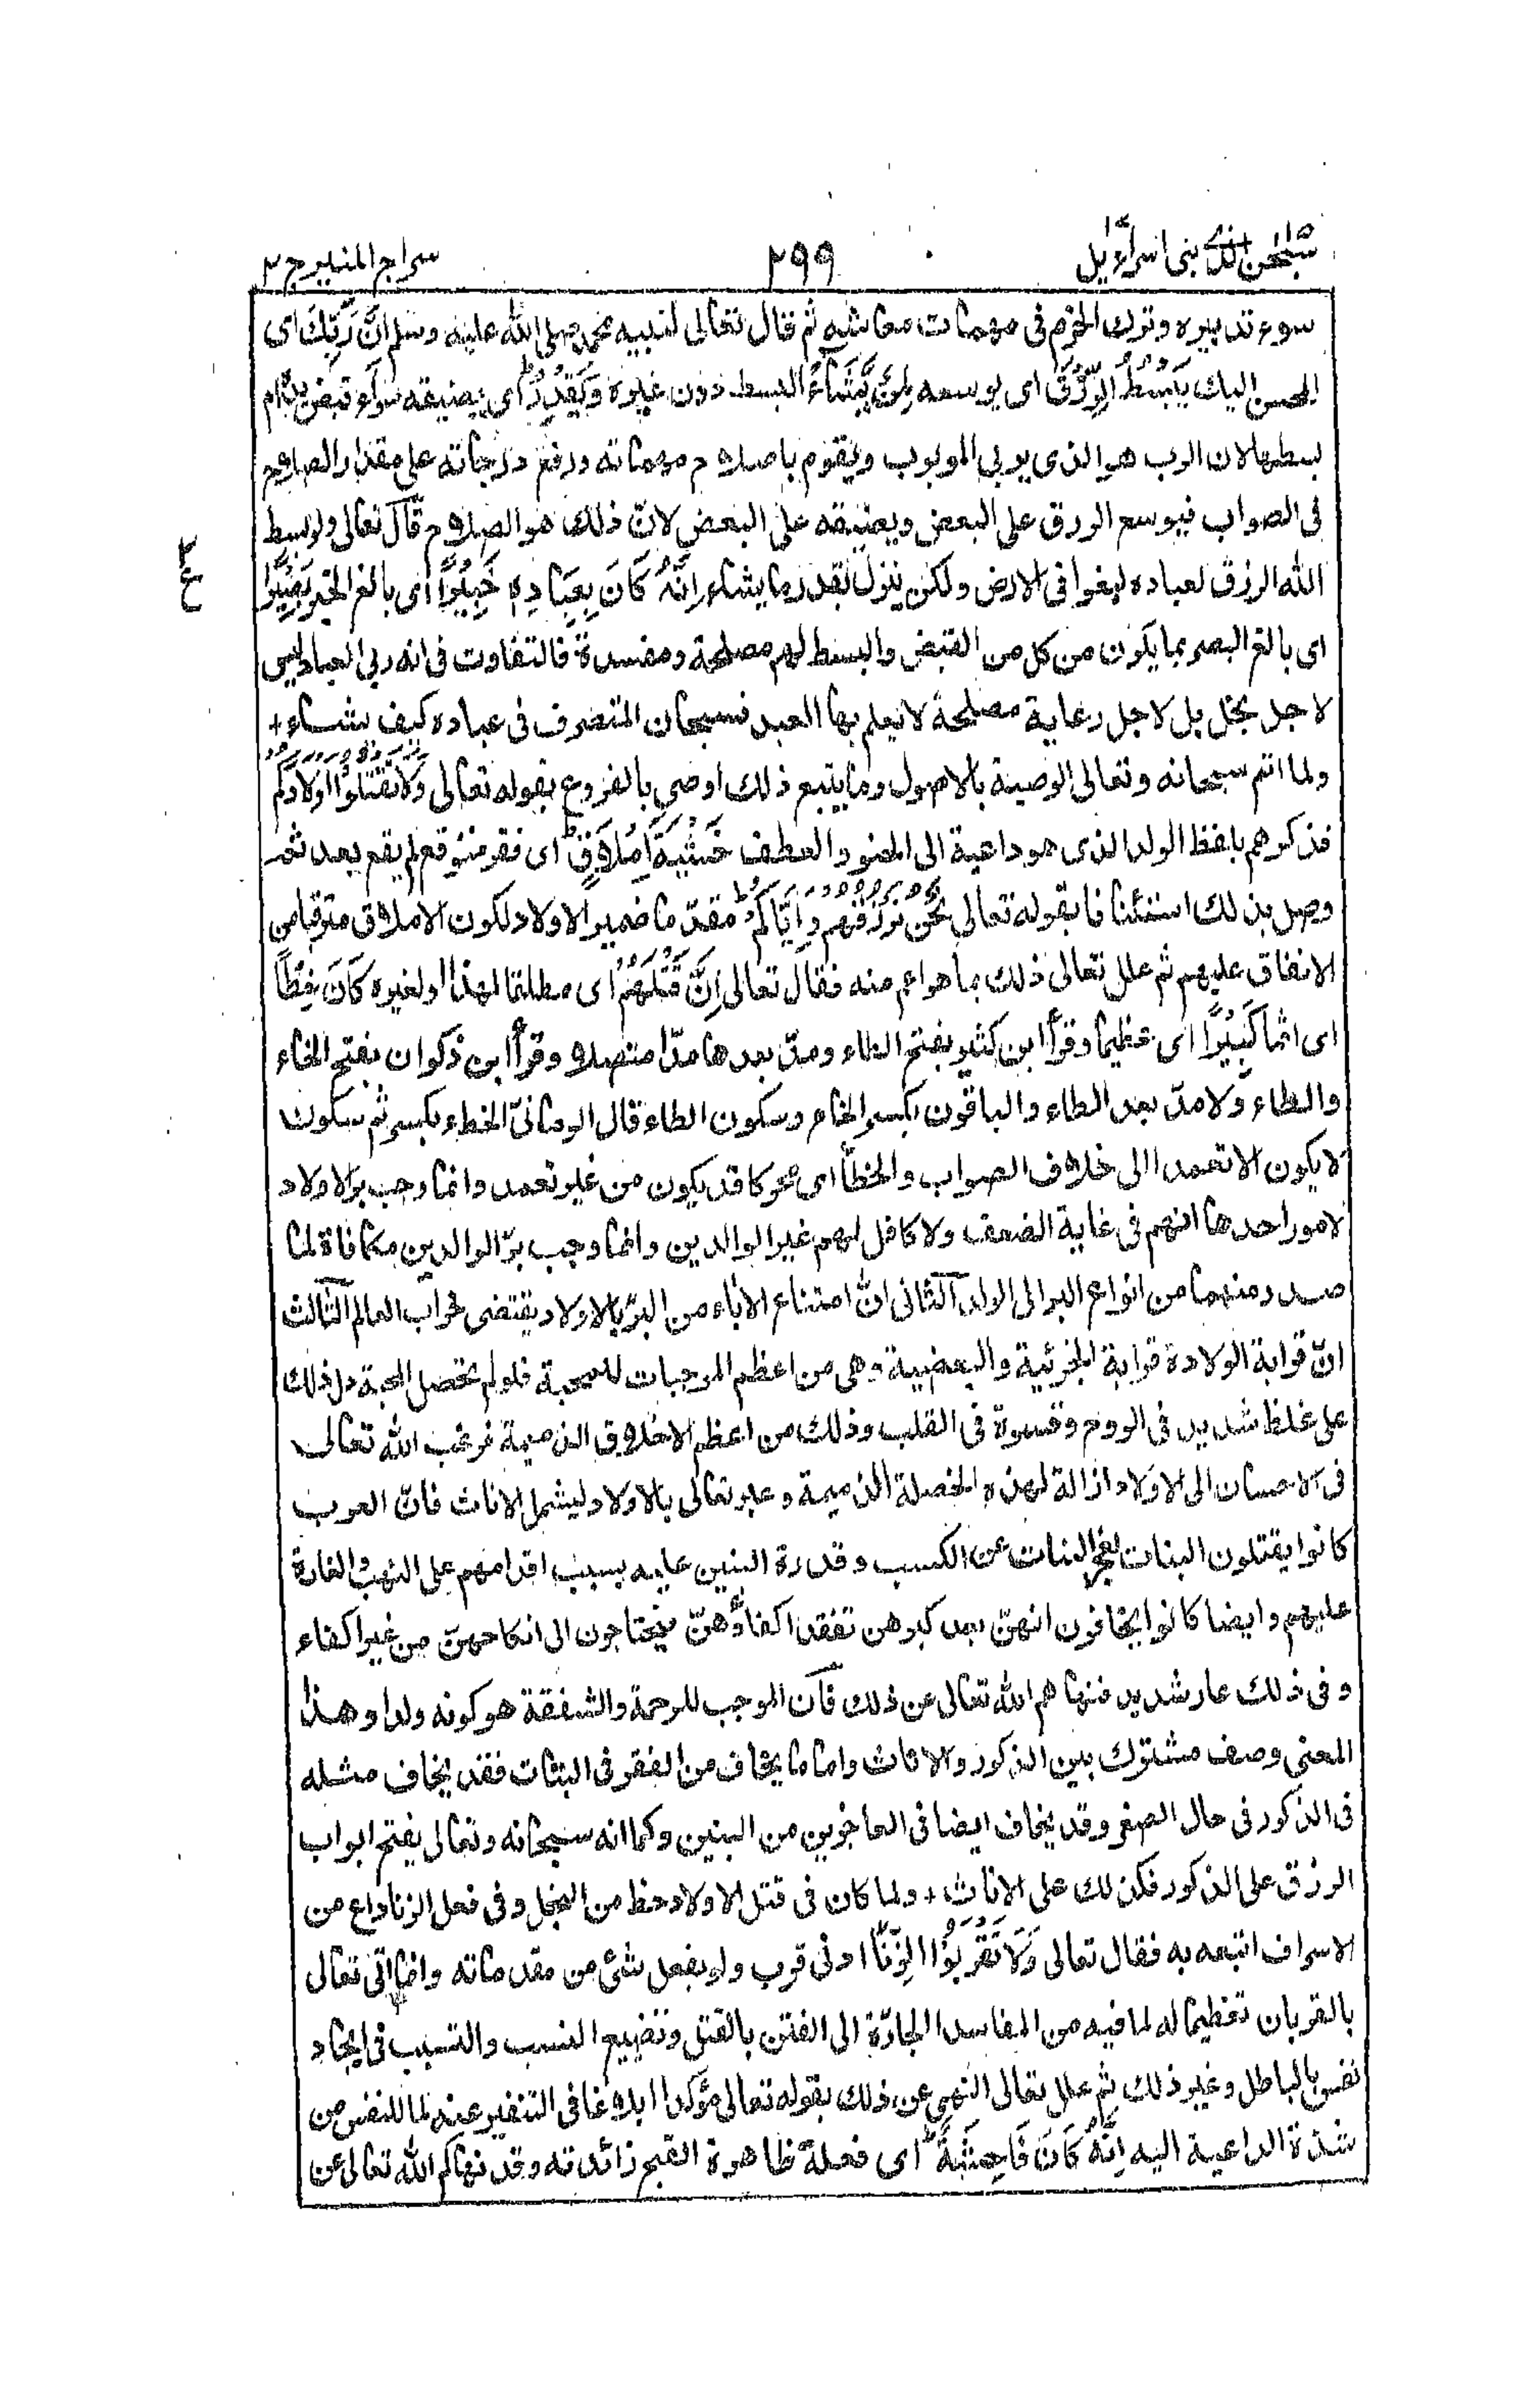 سبحن الذی ١٥ بنی اسرآءیل ٢٩٩ سراج المنیر ج ٢
سوء تدبیره وترك الحزم فی مهمات معاشه ثم قال تعالی لنبیه محمد صلی الله علیه وسلم اِنَّ رَبَّكَ ای
المحسن الیك یَبْسُطُ الرِّزْقَ ای یوسعه لِمَنْ یَّشَآءُ البسط دون غیره وَیَقْدِرُ ای یضیقه سوآء قبض یدہ ام
بسطها لان الرب هو الذی یربی المربوب ویقوم باصلاح مهماته ورفع درجاته علی مقدار الصلاح
فی الصواب فیوسع الرزق علی البعض ویضیقه علی البعض لانّ ذلك هو الصلاح قال تعالی ولو بسط
الله الرزق لعباده لبغوا فی الارض ولكن ینزل بقدر ما یشاء اِنَّهٗ كَانَ بِعِبَادِهٖ خَبِیْرًا ای بالغ الخبر بَصِیْرًا
ع
ای بالغ البصر بما یكون من كل من القبض والبسط لهم مصلحة ومفسدة فالتفاوت فی انه ربی العباد لیس
لاجل بخل بل لاجل رعایة مصلحة لا یعلم بها العبد فسبحان المتصرف فی عباده كیف یشاء +
ولما اتم سبحانه وتعالی الوصیة بالاصول وما یتبع ذلك اوصی بالفروع بقوله تعالی وَلَا تَقْتُلُوْۤا اَوْلَادَكُمْ
فذكرهم بلفظ الولد الذی هو داعیة الی الحنو والعطف خَشْیَةَ اِمْلَاقٍ ای فقر متوقع لم یقع بعد ثم
وصل بذلك استئنافا بقوله تعالی نَحْنُ نَرْزُقُهُمْ وَاِیَّاكُمْ مقدّما ضمیر الاولاد لكون الاملاق مترقبا من
الانفاق علیهم ثم علل تعالی ذلك بما هو اعم منه فقال تعالی اِنَّ قَتْلَهُمْ ای مطلقا لهذا او لغیره كَانَ خِطْاً
ای اثما كَبِیْرًا ای عظیما وقرأ ابن كثیر بفتح الطاء ومدّ بعدها مدّا متصلا وقرأ ابن ذكوان بفتح الخاء
والطاء ولا مدّ بعد الطاء والباقون بكسر الخاء وسكون الطاء قال الرمانیّ الخطء بكسر ثم سكون
لا یكون الا تعمدا الی خلاف الصواب والخطأ ای محركا قد یكون من غیر تعمد وانما وجب برّ الاولاد
لامور احدها انهم فی غایة الضعف ولا كافل لهم غیر الوالدین وانما وجب برّ الوالدین مكافاة لما
صدر منهما من انواع البر الی الولد الثانی انّ امتناع الاٰباء من البرّ بالاولاد یقتضی خراب العالم الثالث
انّ قرابة الولادة قرابة الجزئیة والبعضیة وهی من اعظم الموجبات للمحبة فلو لم تحصل المحبة دل ذلك
علی غلظ شدید فی الروح وقسوة فی القلب وذلك من اعظم الاخلاق الذمیمة فرغب الله تعالی
فی الاحسان الی الاولاد ازالة لهذه الخصلة الذمیمة وعبر تعالی بالاولاد لیشمل الاناث فانّ العرب
كانوا یقتلون البنات لعجز البنات عن الكسب وقدرة البنین علیه بسبب اقدامهم علی النهب والغارة
علیهم وایضا كانوا یخافون انهنّ بعد كبرهن تفقد اكفاؤهنّ فیحتاجون الی انكاحهنّ من غیر اكفاء
وفی ذلك عار شدید فنهاهم الله تعالی عن ذلك فان الموجب للرحمة والشفقة هو كونه ولدا وهذا
المعنی وصف مشترك بین الذكور والاناث واما ما یخاف من الفقر فی البنات فقد یخاف مثله
فی الذكور فی حال الصغر وقد یخاف ایضا فی العاجزین من البنین وكما انه سبحانه وتعالی یفتح ابواب
الرزق علی الذكور فكذلك علی الاناث + ولما كان فی قتل الاولاد حظ من البخل وفی فعل الزنا داع من
الاسراف اتبعه به فقال تعالی وَلَا تَقْرَبُوا الزِّنٰۤى ادنی قرب ولو بفعل شیٔ من مقدماته وانما اتی تعالی
بالقربان تعظیما له لما فیه من المفاسد الجارّة الی الفتن بالقتل وتضییع النسب والتسبب فی ایجاد
نفس بالباطل وغیر ذلك ثم علل تعالی النهی عن ذلك بقوله تعالی مؤكدا ابلاغا فی التنفیر عنه لما للنفس من
شدّة الداعیة الیه اِنَّهٗ كَانَ فَاحِشَةً ای فعلة ظاهرة القبح زائدته وقد نهاكم الله تعالی عن